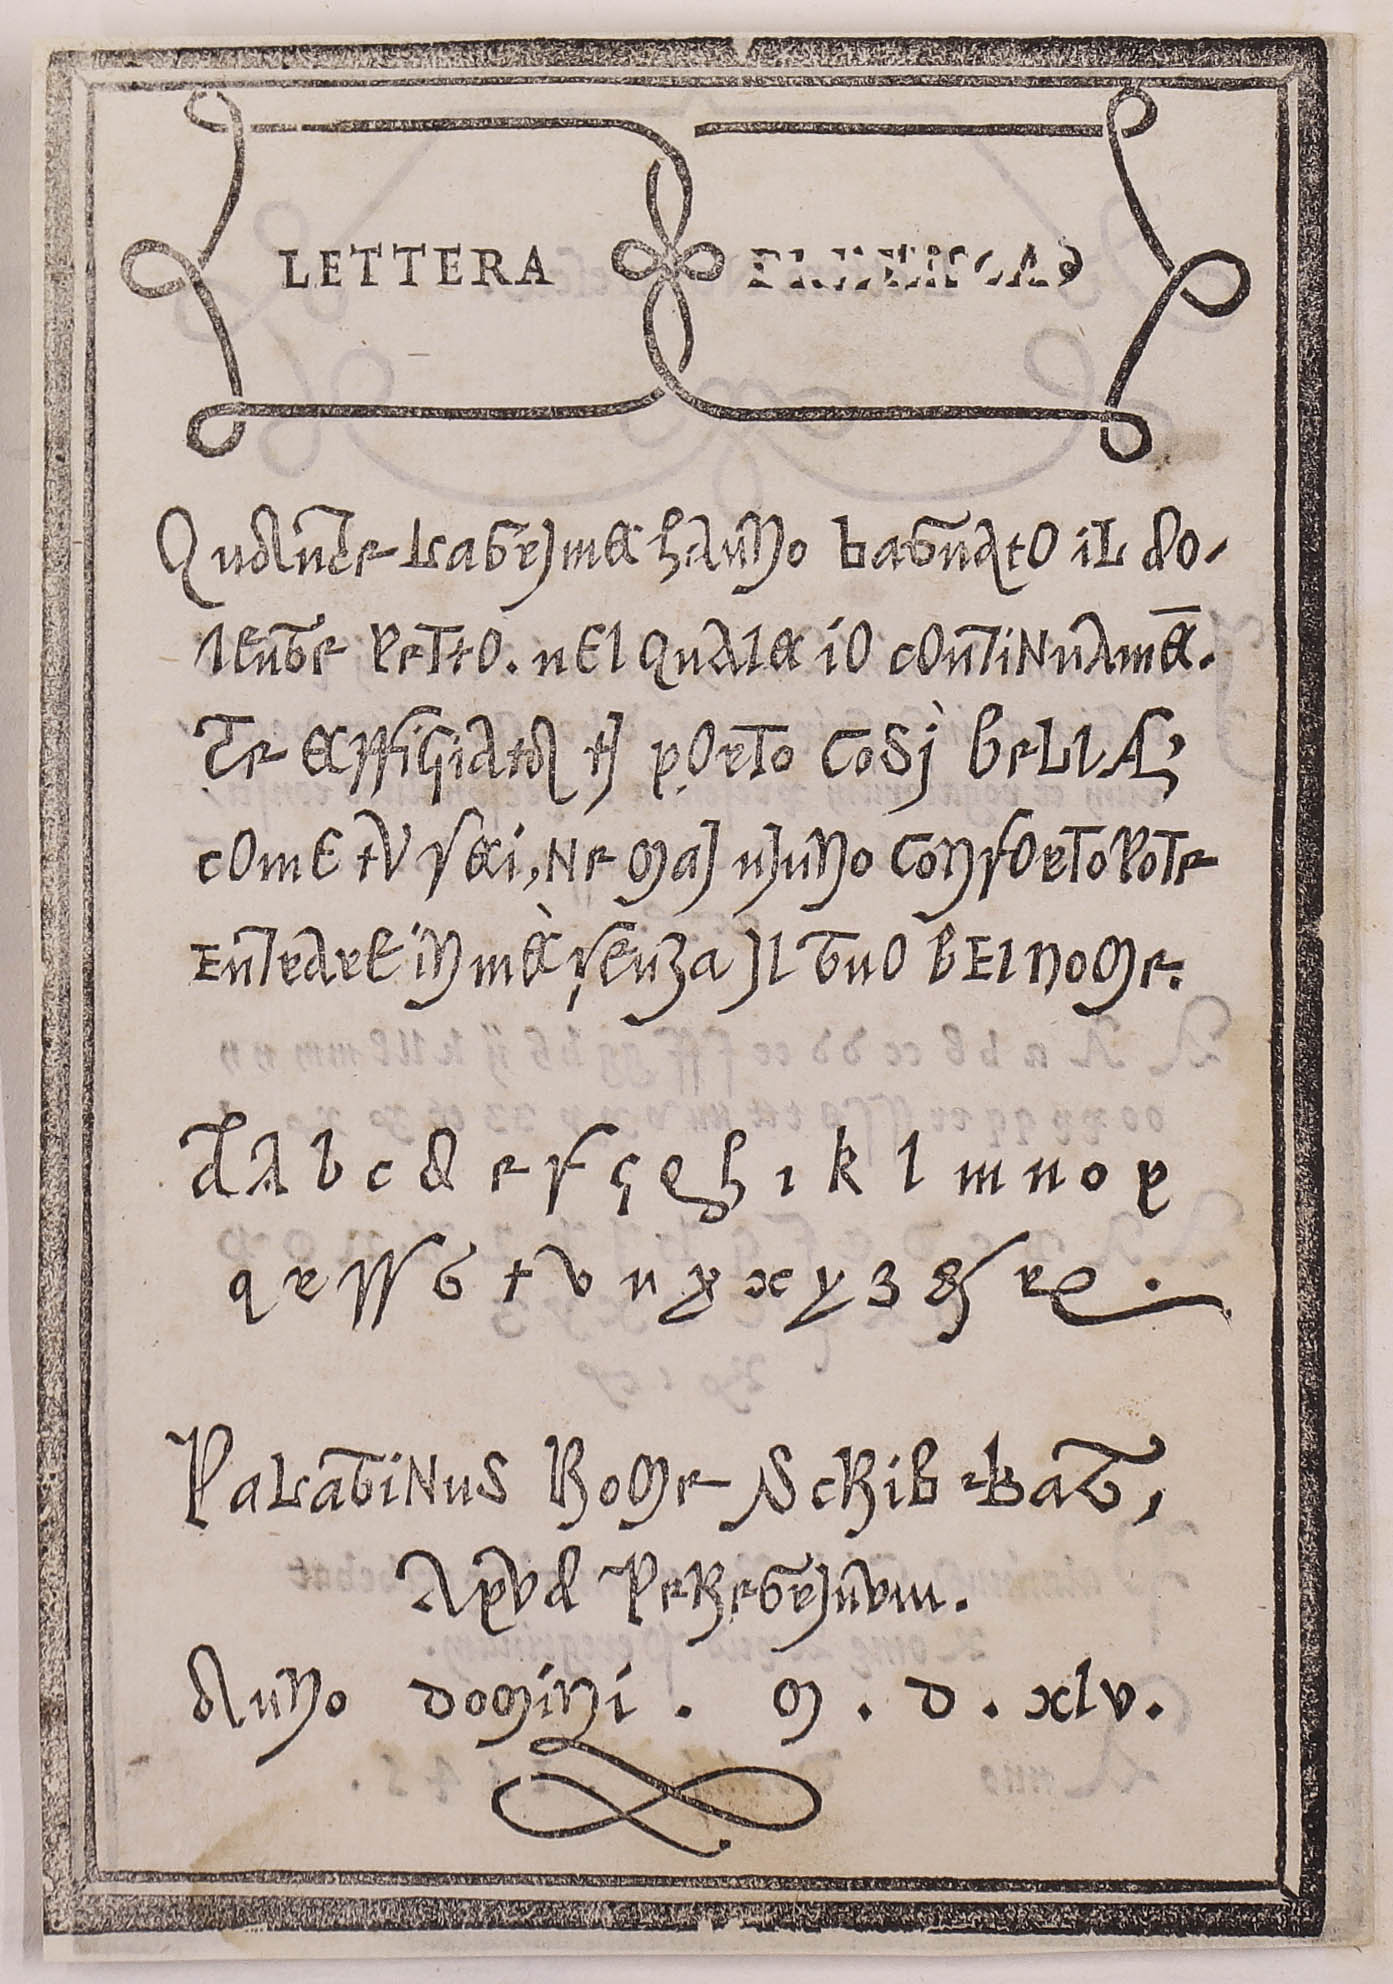 LETTERA
Quante lagrjme hanno bagnato il do-
lente petto. nel quale io continuamē.
te effigiata tj porto cosj̀ bella,
come tu sei, ne maj njuno conforto pote
entrare in mè senza jl tuo bel nome.
a a b c d e f g g h i k l m n o p
q r ſſ s t v u x x y z & r .
Palatinus Rome Scribebat,
Apud Peregrjnum.
Anno domini . m . d . xlv.